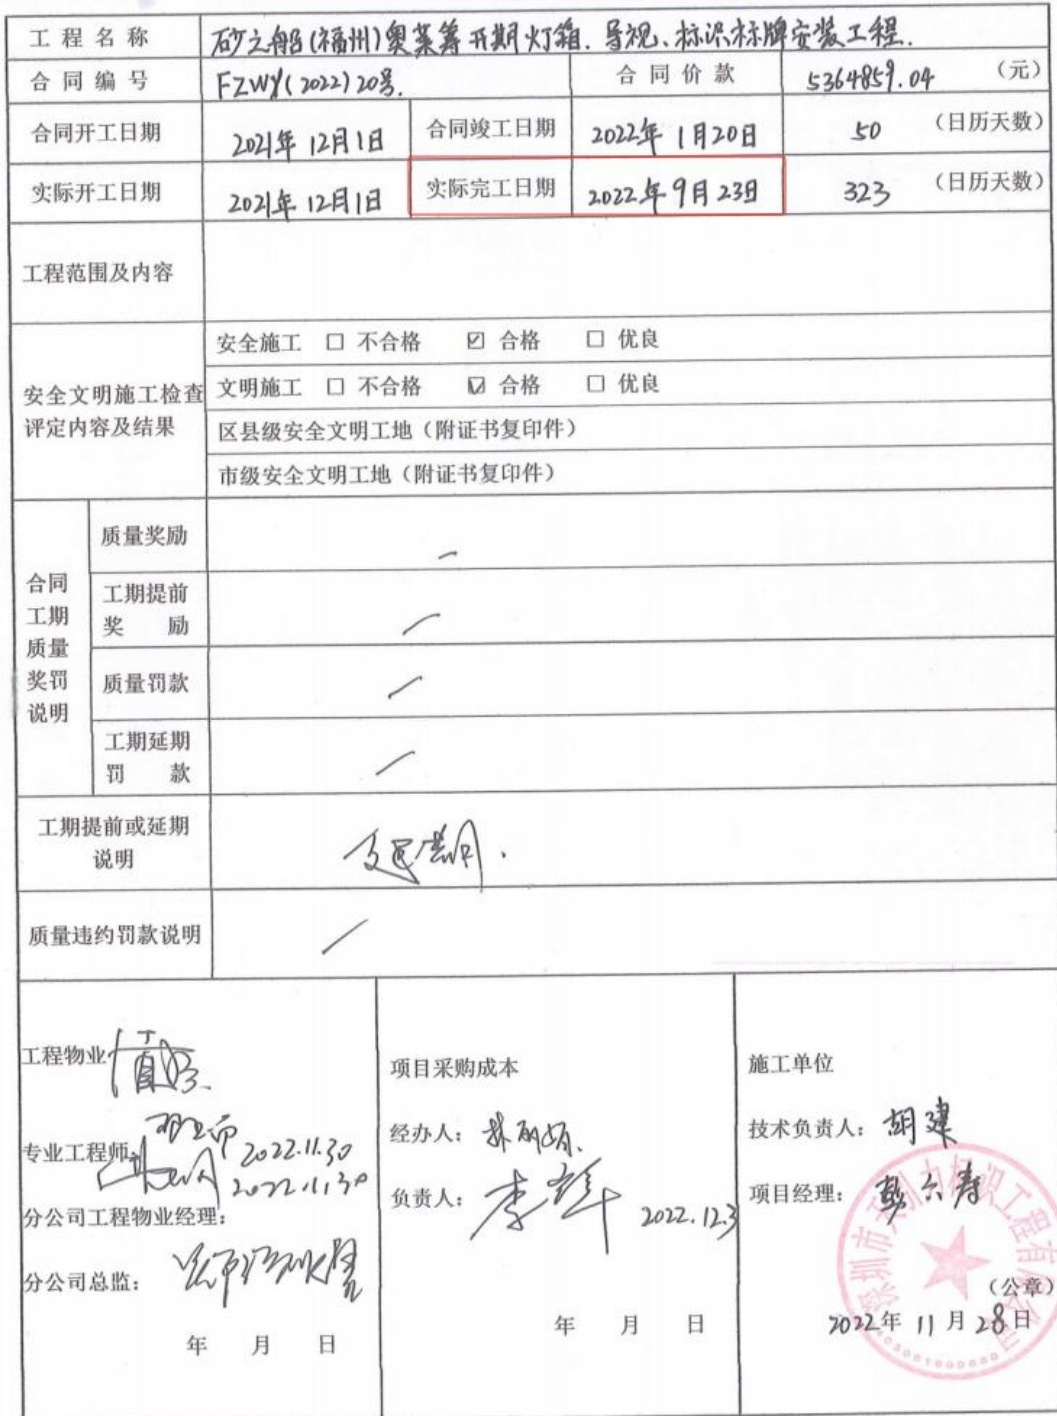 工程名称 砂之船(福州)奥莱筹开期灯箱、导视、标识标牌安装工程.
合同编号 FZWY(2022)20号. 合同价款 5364859.04 (元)
合同开工日期 2021年12月1日 合同竣工日期 2022年1月20日 50 (日历天数)
实际开工日期 2021年12月1日 实际完工日期 2022年9月23日 323 (日历天数)
工程范围及内容
安全文明施工检查
评定内容及结果
安全施工 □ 不合格 ☑ 合格 □ 优良
文明施工 □ 不合格 ☑ 合格 □ 优良
区县级安全文明工地（附证书复印件）
市级安全文明工地（附证书复印件）
合同
工期
质量
奖罚
说明
质量奖励
工期提前
奖 励
质量罚款
工期延期
罚 款
工期提前或延期
说明
质量违约罚款说明
工程物业
专业工程师:
2022.11.30
2022.11.30
分公司工程物业经理:
分公司总监:
年 月 日
项目采购成本
经办人:
负责人: 李
2022.12.3
年 月 日
施工单位
技术负责人: 胡建
项目经理:
(公章)
2022年11月28日